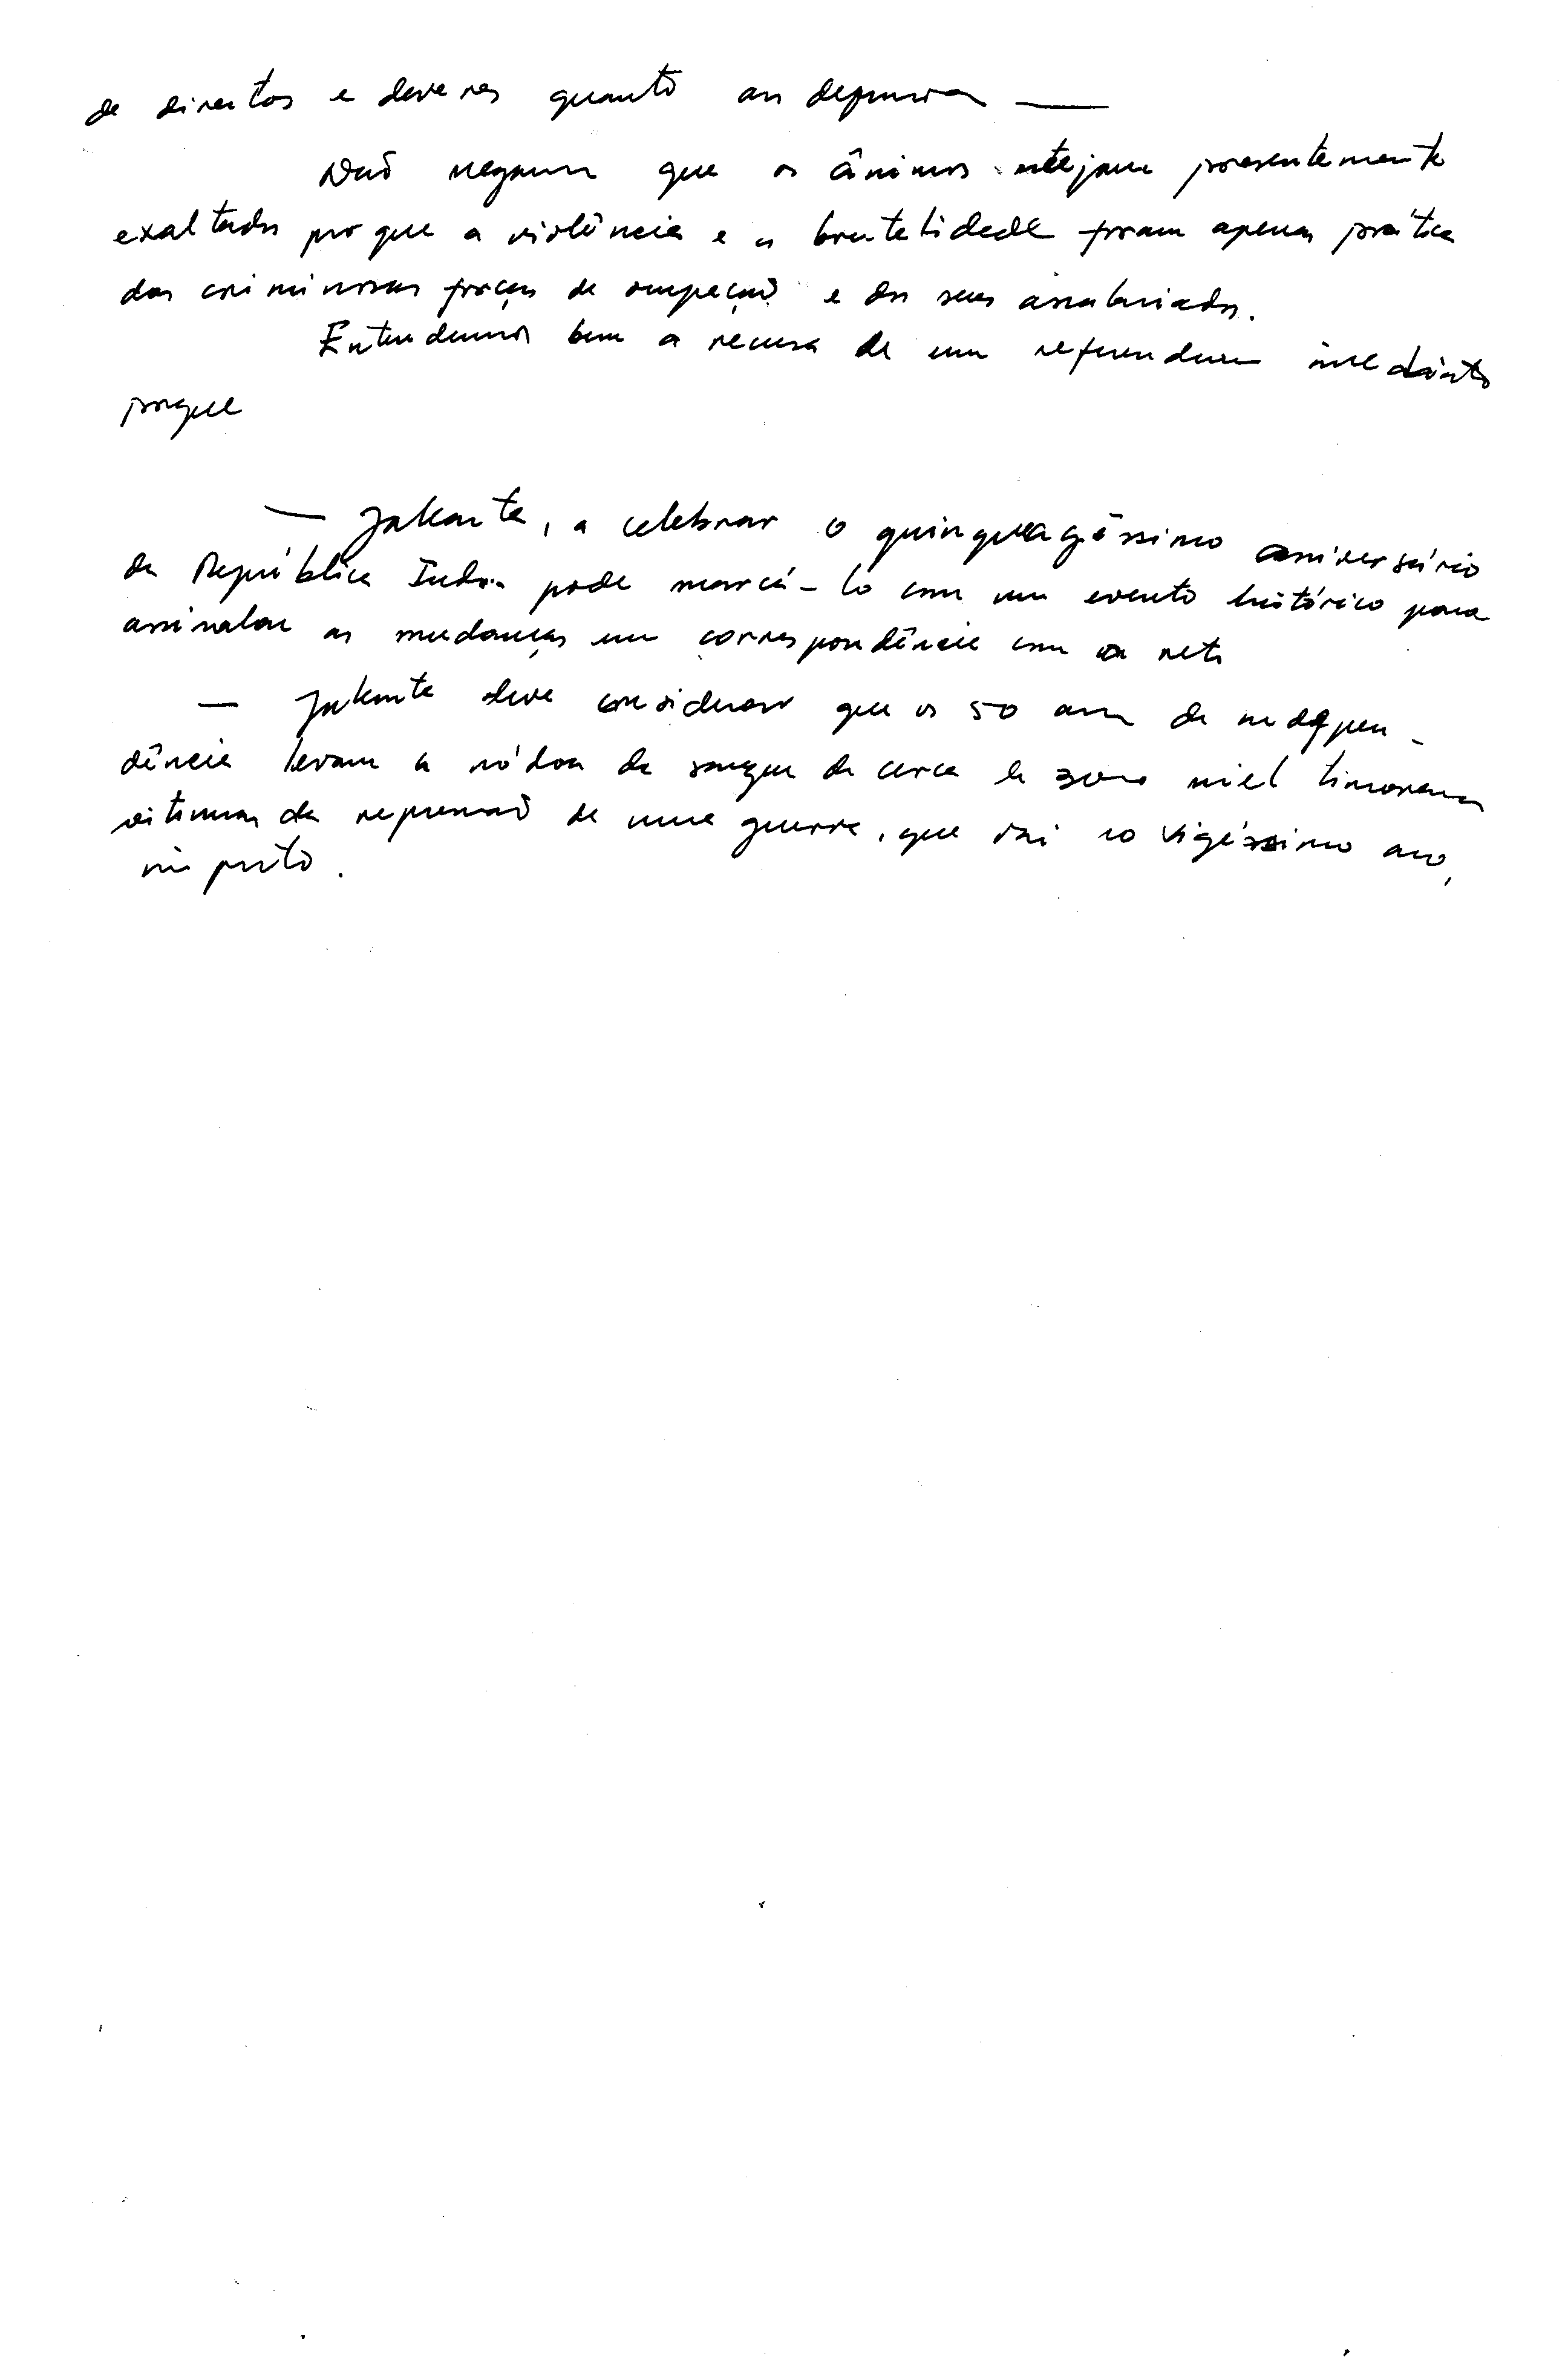 de direitos e deveres quanto aos
Não negamos que os ânimos estejam presentemente
exaltados porque a violência e a brutalidade foram apenas prática
das criminosas forças de ocupação e dos seus assalariados.
Entendemos bem a recusa de um referendum imediato
porque
— Jakarta, a celebrar o quinquagéssimo aniversário
da República Indon. pode marcá-lo com um evento histórico para
assinalar as mudanças em correspondência com os
— Jakarta deve considerar que os 50 anos de indepen-
dência levam a nódoa de sangue de cerca de mil timorenses
vítimas da repressão de uma guerra, que vai no vigéssimo ano,